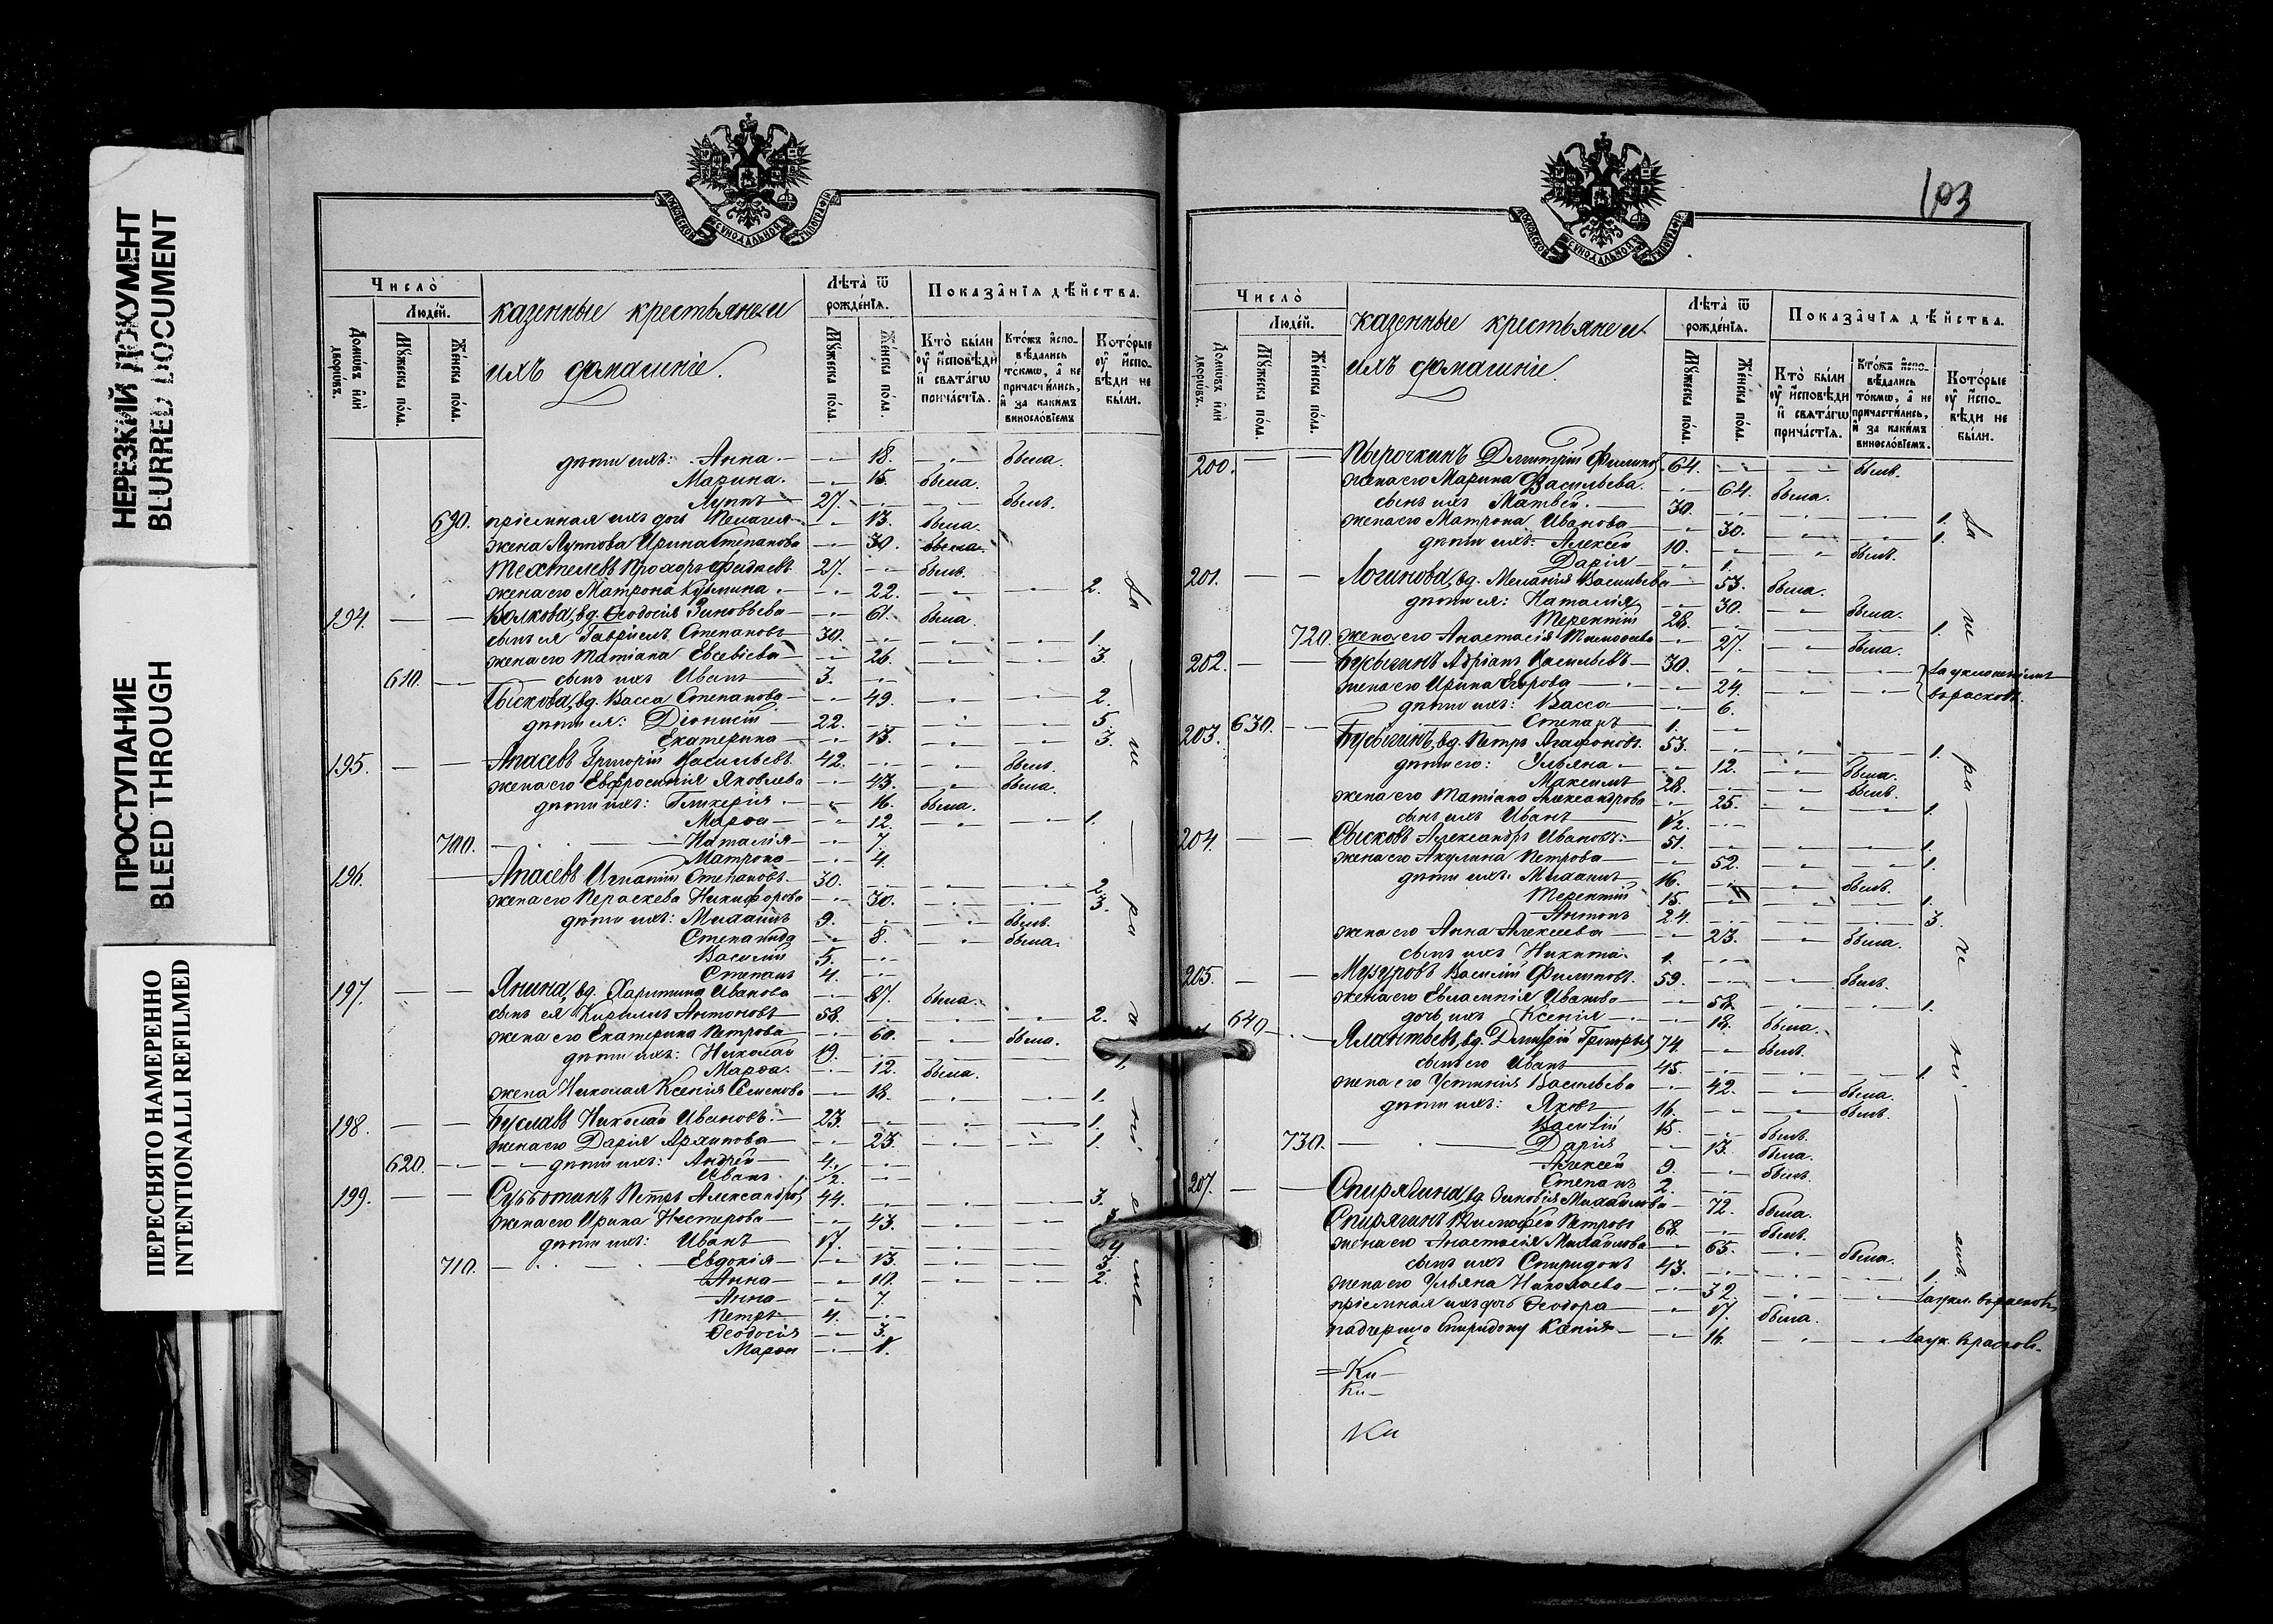 НЕРЕЗКИЙ ДОКУМЕНТ
BLURRED DOCUMENT
ПРОСТУПАНИЕ
BLEED THROUGH
ПЕРЕСНЯТО НАМЕРЕННО
INTENTIONALLI REFILMED
МОСКОВСКОЙ СУНОДАЛЬНОЙ ТИПОГРАФІИ
Число̀
Люде́й.
Домѡ́въ и҆лѝ дворѡ́въ.
Мꙋ́жеска по́ла.
Же́нска по́ла.
казенные крестьяне и
ихъ домашніе.
Лѣта̀ ѿ рожде́нїѧ.
Мꙋ́жеска по́ла.
Же́нска по́ла.
Показа̑нїѧ дѣ́йства.
Кто̀ бы́ли ᲂу҆ и҆сповѣ́ди и҆ свѧта́гѡ прича́стїѧ.
Кто́жъ и҆спо-вѣ́дались то́кмѡ, а҆ не причасти́лись, и҆ за каки́мъ винослѡ́вїемъ
Кото́рые ᲂу҆ и҆спо-вѣ́ди не бы́ли.
дѣти ихъ: Анна 18. была.
Марина. 15. была.
Луппъ 27. былъ.
690. пріемная ихъ дочь Пелагея 13. была.
жена Луппова Ирина Степанова 30. была.
Прохоръ 27. былъ.
жена его Матрона Кузьмина 22. 2.
194. Волкова, вд. Ѳеодосія Зиновьева 61. была.
сынъ ея Гавріилъ Степановъ 30. 1.
жена его Татіана Евсевіева 26. 3.
610. сынъ ихъ Иванъ 3.
Сыскова, вд. Васса Степанова 49. 2.
дѣти ея: Діонисій 22. 5.
Екатерина 13. 3.
195. Апасевъ Григорій Васильевъ 42. былъ.
жена его Евфросинія Яковлева 43. была.
дѣти ихъ: Гликерія 16. была.
Марѳа 12. 1.
700. Наталія 7.
Матрона 4.
196. Апасевъ Игнатій Степановъ 30. 2.
жена его Параскева Никифорова 30. 3.
дѣти ихъ: Михаилъ 9. былъ.
Степанида 8. была.
Василій 5.
Степанъ 4.
197. Янина, вд. Харитина Иванова 87. была.
сынъ ея Кириллъ Антоновъ 58. 2.
жена его Екатерина Петрова 60. была.
дѣти ихъ: Николай 19. 1.
Марѳа. 12. была.
жена Николая Ксенія Семенова 18. 1.
198. Николай Ивановъ 23. 1.
жена его Дарія Архипова 23. 1.
620. дѣти ихъ: Андрей 4.
Иванъ 1/2.
199. Субботинъ Петръ Александровъ 44. 3.
жена его Ирина Нестерова 43.
дѣти ихъ: Иванъ 17.
710. Евдокія 13. 3.
Анна 10. 2.
Анна 7.
Петръ 4.
Ѳеодосія 3.
Марѳа 1.
за не ра д ні е мъ
103
МОСКОВСКОЙ СУНОДАЛЬНОЙ ТИПОГРАФІИ
Число̀
Люде́й.
Домѡ́въ и҆лѝ дворѡ́въ.
Мꙋ́жеска по́ла.
Же́нска по́ла.
казенные крестьяне и
ихъ домашніе.
Лѣта̀ ѿ рожде́нїѧ.
Мꙋ́жеска по́ла.
Же́нска по́ла.
Показа̑нїѧ дѣ́йства.
Кто̀ бы́ли ᲂу҆ и҆сповѣ́ди и҆ свѧта́гѡ прича́стїѧ.
Кто́жъ и҆спо-вѣ́дались то́кмѡ, а҆ не причасти́лись, и҆ за каки́мъ винослѡ́вїемъ.
Кото́рые ᲂу҆ и҆спо-вѣ́ди не бы́ли.
200. Пырочкинъ Дмитрій Филип. 64. былъ.
жена его Марина Васильева. 64. была.
сынъ ихъ Матвей. 30. 1.
жена его Матрона Иванова 30. 1.
дѣти ихъ: Алексей 10. былъ.
Дарія 1.
201. Логинова, вд. Меланія Васильева 53. была.
дѣти ея: Наталія 30. была.
Терентій 28. 1.
720. жена его Анастасія Тимоѳеева 27. была.
202. Бусыгинъ Адріанъ Васильевъ 30. За уклоненіемъ
жена его Ирина Егорова 24. въ расколъ.
дѣти ихъ: Васса 6.
630. Степанъ 1.
203. Бусыгинъ, вд. Петръ Агафоновъ 53. 1.
дѣти его: Ульяна 12. была.
Максимъ 28. былъ.
жена его Татіана Александрова 25. 1.
сынъ ихъ Иванъ 1/2.
204. Сысковъ Александръ Ивановъ 51. 1.
жена его Акулина Петрова 52. 1.
дѣти ихъ: Михаилъ 16. былъ.
Терентій 15. 1.
Антонъ 24. 3.
жена его Анна Алексеева 23. была.
сынъ ихъ Никита 1.
205. Музуровъ Василій Филиповъ 59. былъ.
жена его Евлампія Иванова 58. 1.
640 дочь ихъ Ксенія 18. была.
вд. Димитрій Григорьев 74. былъ.
сынъ его Иванъ 45. 1.
жена его Устинія Васильева 42. была.
дѣти ихъ: Яковъ 16. былъ.
Василій 15. былъ.
730. Дарія 13. была.
Алексей 9. былъ.
Степанъ 2.
207. Спирягина, вд. Зиновія Михайлова 72. была.
Спирягинъ Тимофей Петровъ 68. былъ.
жена его Анастасія Михайлова 65. была.
сынъ ихъ Спиридонъ 43. 1.
жена его Ульяна Николаева 32. За укл. въ расколъ
пріемная ихъ дочь Ѳеодора 17. была.
падчерица Спиридону Ксенія 16. За ук. въ раскол.
за не ра д ні емъ